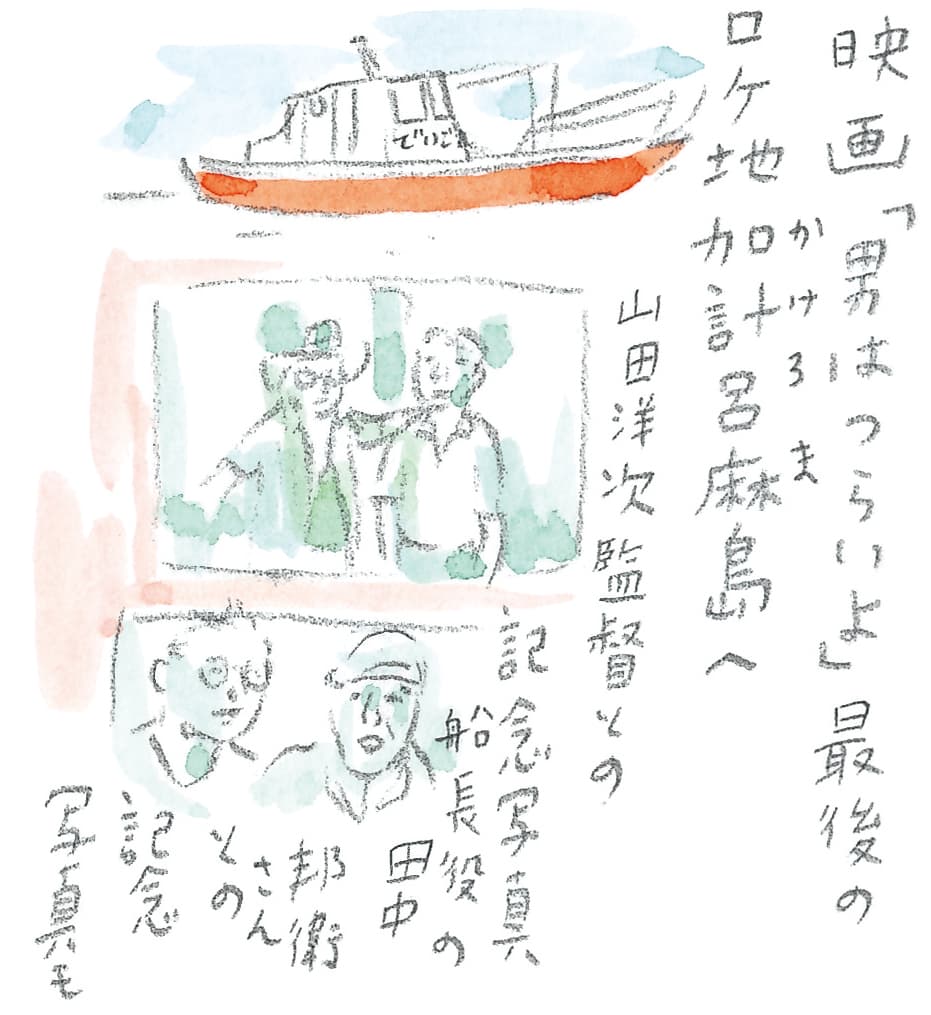 映画「男はつらいよ」最後の
ロケ地加計呂麻島へ
かけろま
山田洋次監督との
記念写真
船長役の
田中
邦衛
さん
との
記念
写真も
でいご